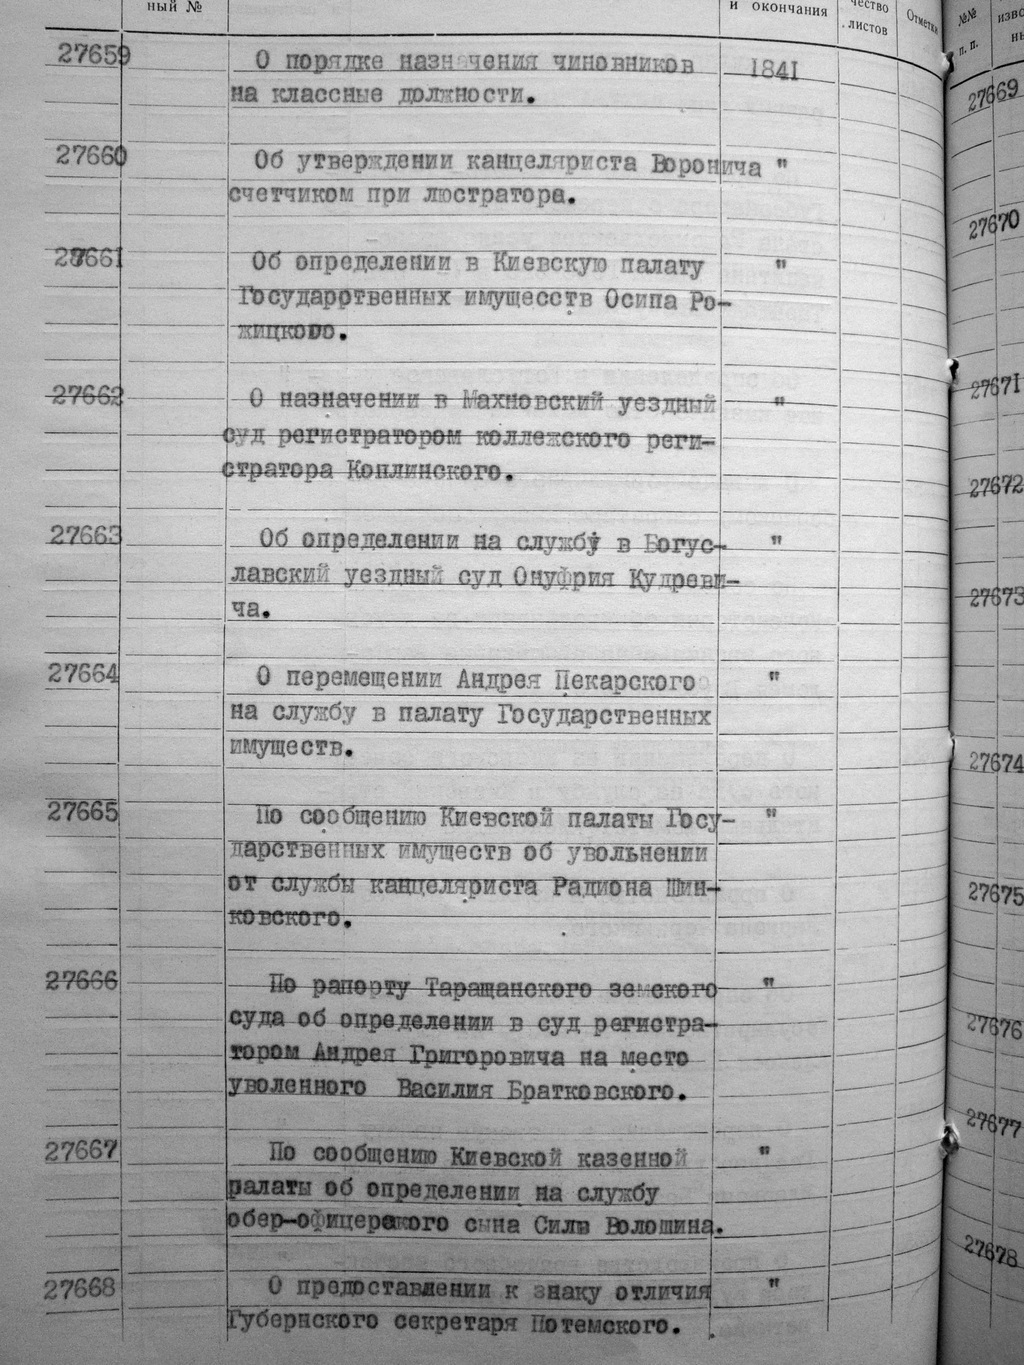 ный № и окончания чество листов Отметки
27659 О порядке назначения чиновников 1841
на классные должности.
27660 Об утверждении канцеляриста Воронича "
счетчиком при люстратора.
27661 Об определении в Киевскую палату "
Государственных имуществ Осипа Ро-
жицкого.
27662 О назначении в Махновский уездный "
суд регистратором коллежского реги-
стратора Коплинского.
27663 Об определении на службу в Богус- "
лавский уездный суд Онуфрия Кудреви-
ча.
27664 О перемещении Андрея Пекарского "
на службу в палату Государственных
имуществ.
27665 По сообщению Киевской палаты Госу- "
дарственных имуществ об увольнении
от службы канцеляриста Радиона Шин-
ковского.
27666 По рапорту Таращанского земского "
суда об определении в суд регистра-
тором Андрея Григоровича на место
уволенного Василия Братковского.
27667 По сообщению Киевской казенной "
палаты об определении на службу
обер-офицерского сына Силы Волошина.
27668 О предоставлении к знаку отличия "
Губернского секретаря Потемского.
№№ п. п.
27669
27670
27671
27672
27673
27674
27675
27676
27677
27678